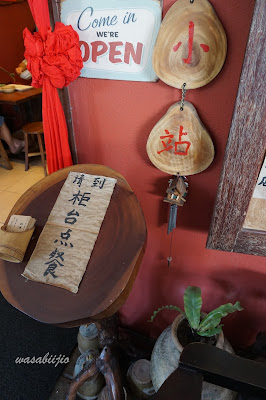 Come in
WE'RE
OPEN
小
站
請到
柜台点餐
wasabiijio